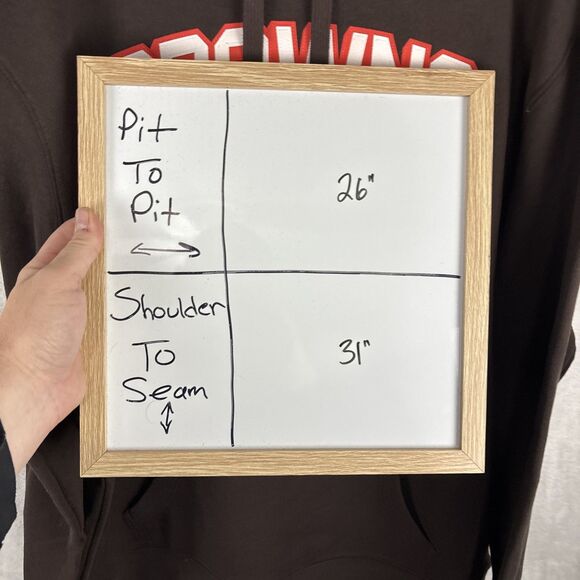 BROWNS
Pit
To
Pit
26"
Shoulder
To
Seam
31"